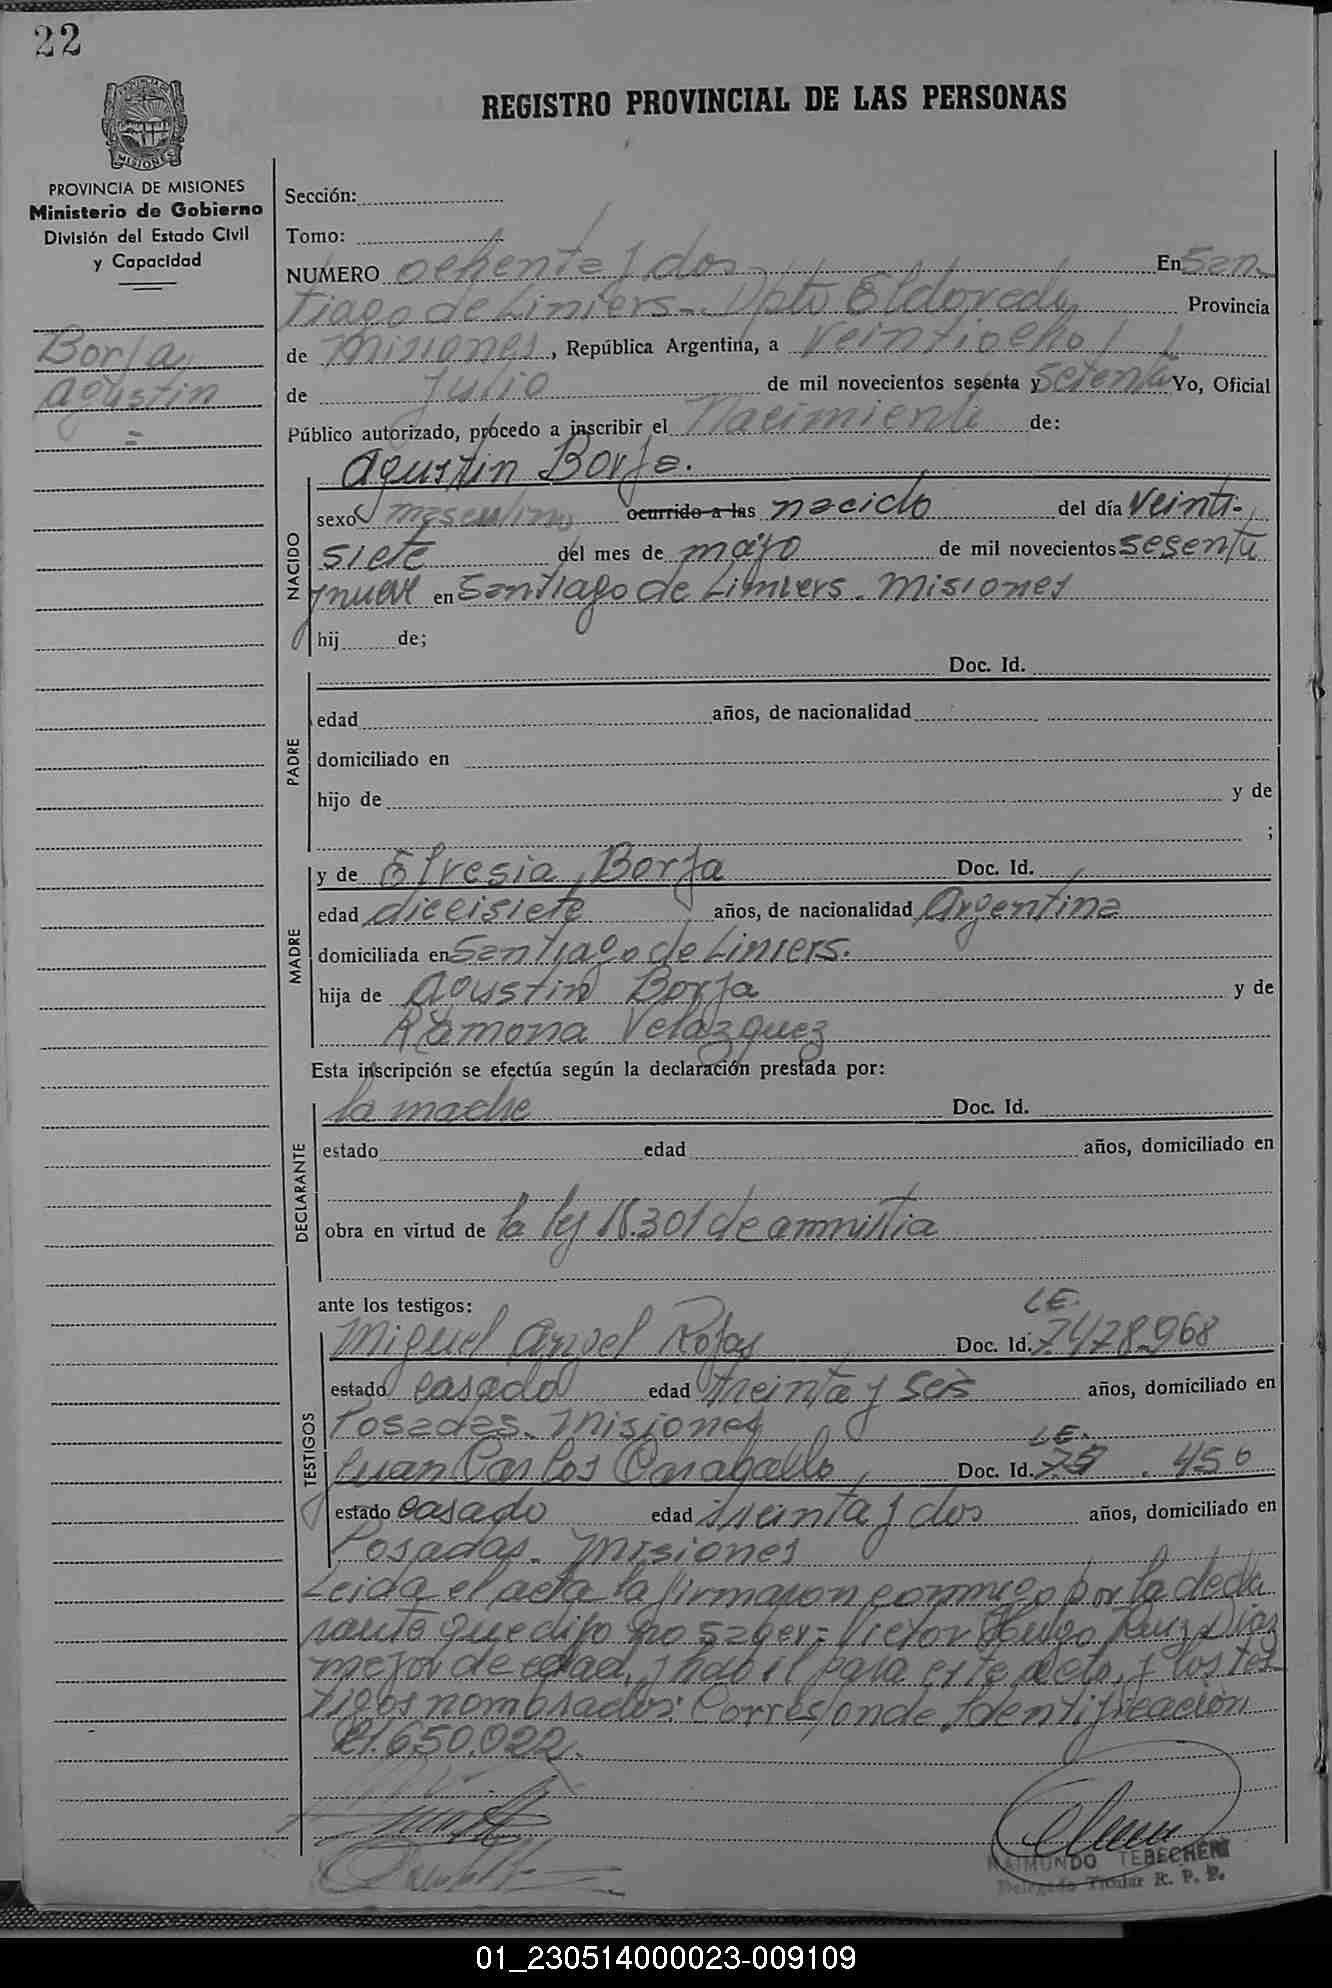 22
REGISTRO PROVINCIAL DE LAS PERSONAS
MISIONES
PROVINCIA DE MISIONES
Ministerio de Gobierno
División del Estado Civil
y Capacidad
Borja
Agustin
Sección:
Tomo:
NUMERO ochenta y dos En San
tiago de Liniers - Dpto Eldorado Provincia
de Misiones, República Argentina, a veintiocho
de Julio de mil novecientos sesenta y setenta Yo, Oficial
Público autorizado, procedo a inscribir el Nacimiento de:
Agustin Borja.
NACIDO
sexo masculino ocurrido a las nacido del día veinti-
siete del mes de mayo de mil novecientos sesenta
y nueve en Santiago de Liniers. Misiones
hij de;
PADRE
Doc. Id.
edad años, de nacionalidad
domiciliado en
hijo de y de
;
MADRE
y de Efresia Borja Doc. Id.
edad diecisiete años, de nacionalidad Argentina
domiciliada en Santiago de Liniers.
hija de Agustin Borja y de
Ramona Velazquez
Esta inscripción se efectúa según la declaración prestada por:
DECLARANTE
la madre Doc. Id.
estado edad años, domiciliado en
obra en virtud de la ley 18.301 de amnistia
ante los testigos:
TESTIGOS
L.E.
Miguel Angel Rojas Doc. Id. 7478968
estado casado edad treinta y seis años, domiciliado en
Posadas. Misiones
L.E.
Juan Carlos Caraballo Doc. Id. 75 . 450
estado casado edad treinta y dos años, domiciliado en
Posadas. Misiones
Leida el acta la firmaron conmigo por la decla
rante que dijo no saber: Victor Hugo Ruiz Diaz
mejor de edad, y habil para este acto, y los tes-
tigos nombrados: Corresponde Identificación
21.650.022.
RAIMUNDO TEBECHERI
Delegado Titular R. P. P.
01_230514000023-009109